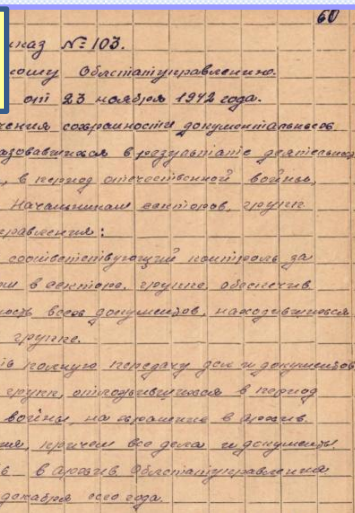 60
каз № 103.
кому Облстатуправлению.
от 23 ноября 1942 года.
чения сохранности документальных
азовавшихся в результате деятельнос
, в период отечественной войны,
Начальникам секторов, групп
правления:
соответствующий контроль за
и в секторе, группе обеспечив
ность всех документов, находившихся
группе.
ив полную передачу дел и документов
групп, отложившихся в период
войны, на хранение в архив
ия, причем все дела и документы
ь в архив Облстатуправления
декабря сего года.